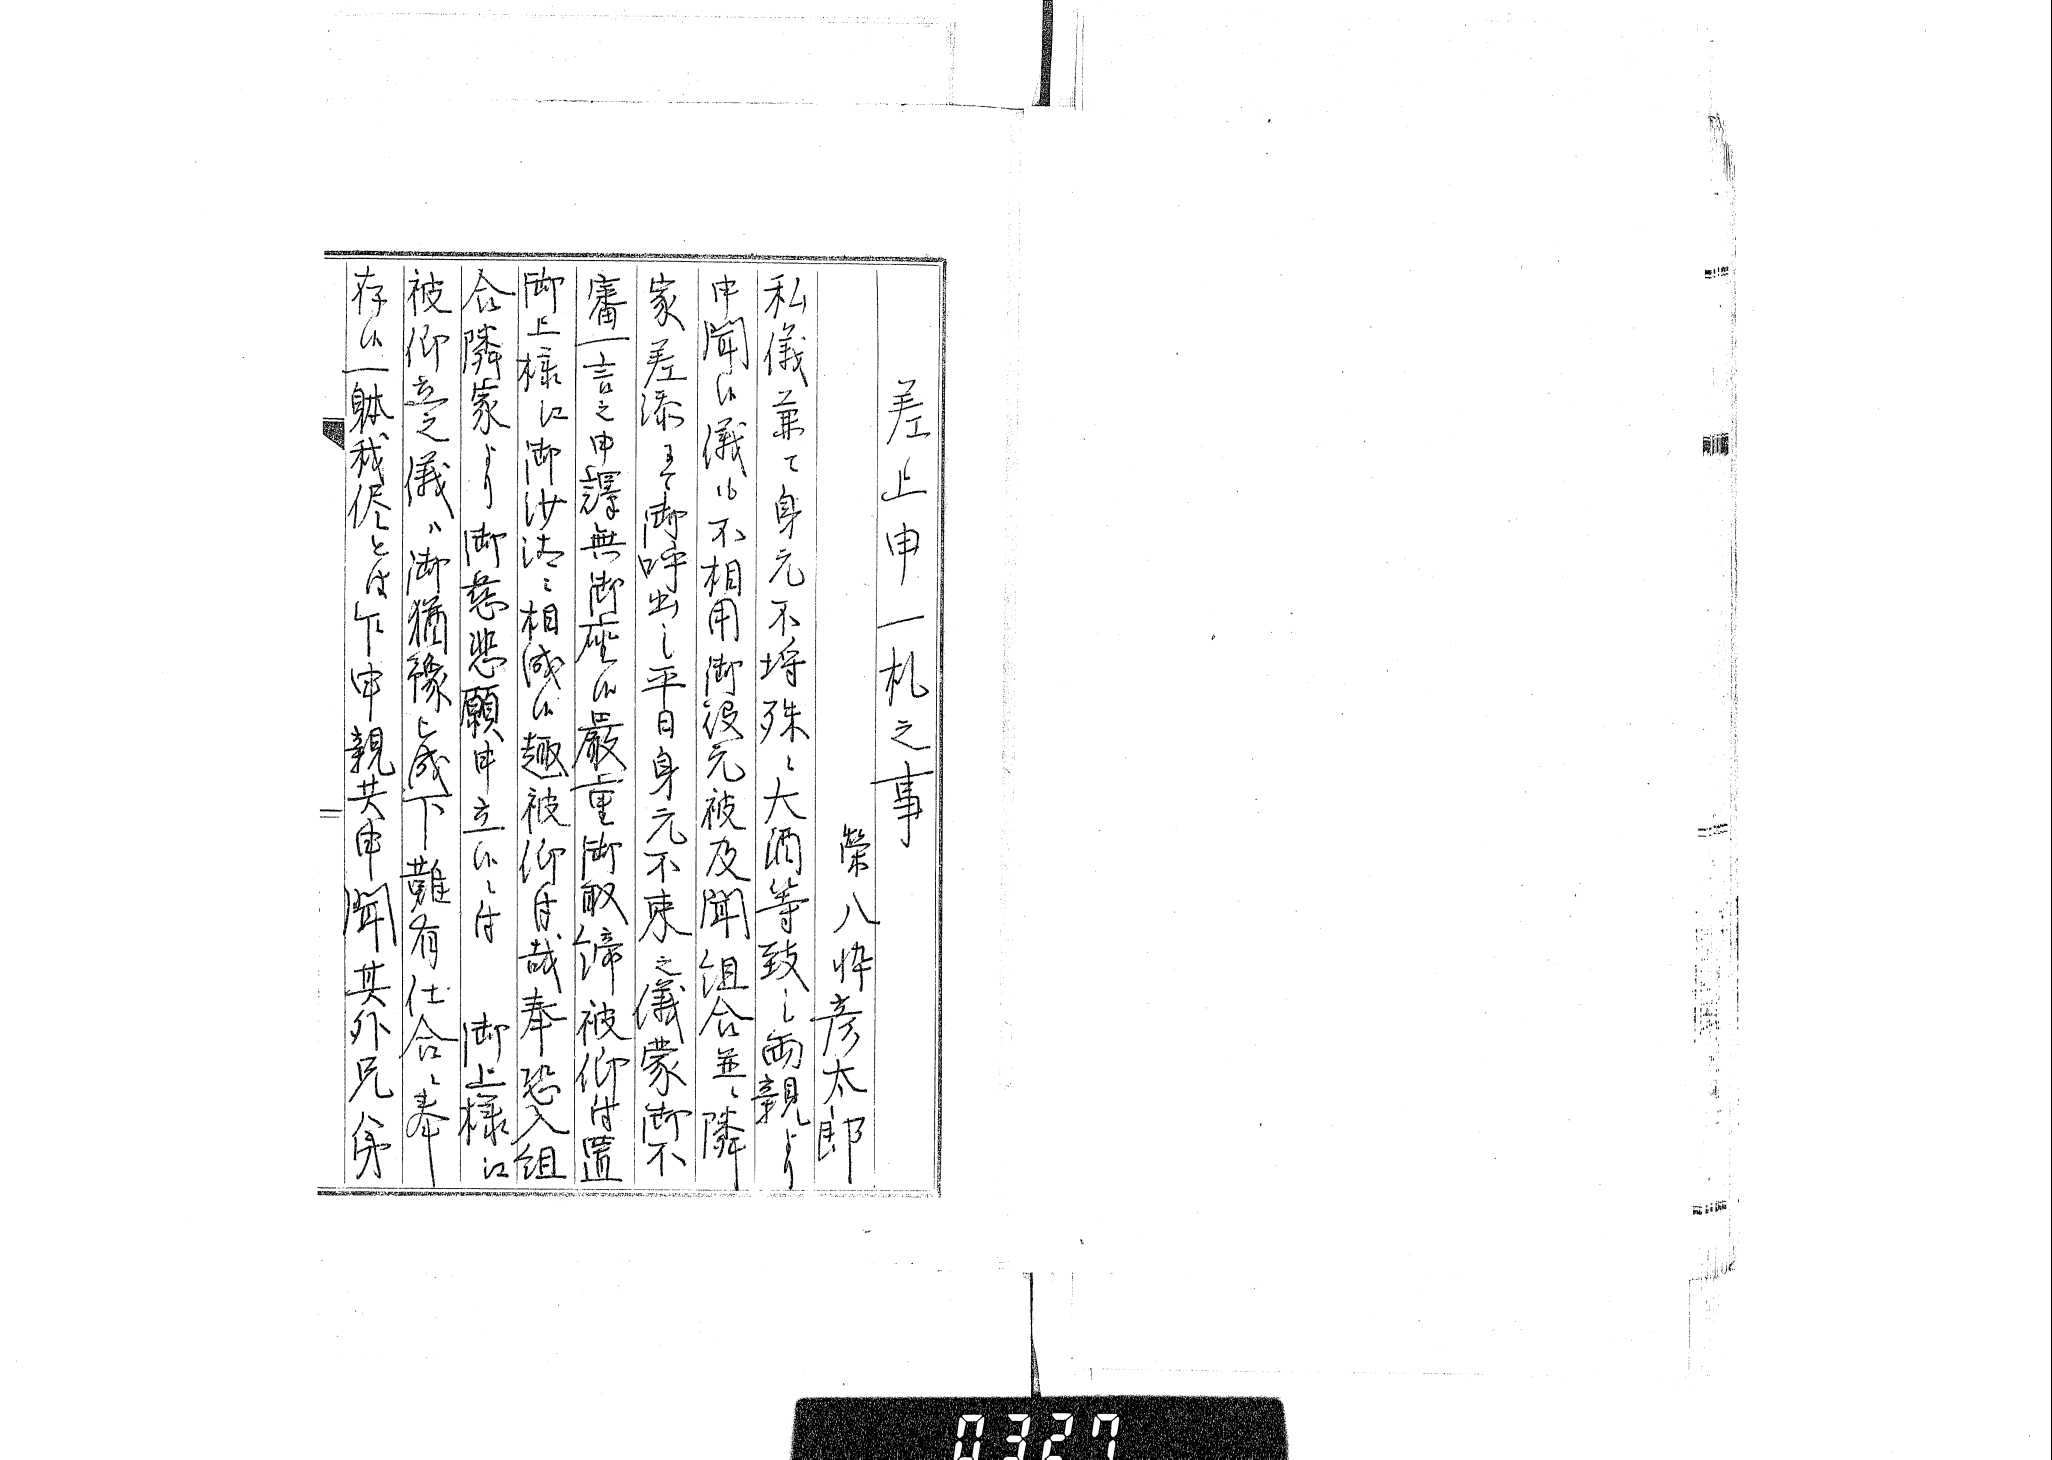 差上申一札之事
榮八忰彦太郎
私儀兼て身元不埒殊ニ大酒等致し両親より
申聞候儀も不相用御役元被及聞組合並ニ隣
家差添ニて御呼出し平日身元不束之儀蒙御不
審一言之申譯無御座候嚴重御取締被仰付置
御上様江御沙汰ニ相成候趣被仰付哉奉恐入組
合隣家より御慈悲願申立候ニ付　御上様江
被仰立之儀ハ御猶豫ニ成下難有仕合ニ奉
存候一躰我侭とは乍申親共申聞其外兄弟
0327